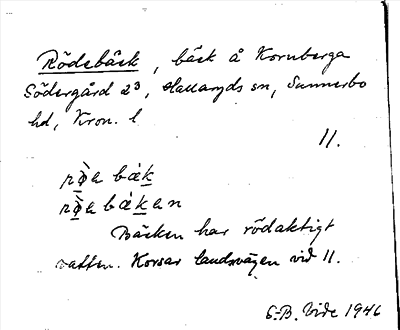 Rödebäck, bäck å Kornberga
Södergård 2³, Hallaryds sn, Sunnerbo
hd, Kron. l
11.
bäken
Bäcken har rödaktigt
vatten. Korsar landsvägen vid 11.
G.B. Vide 1946